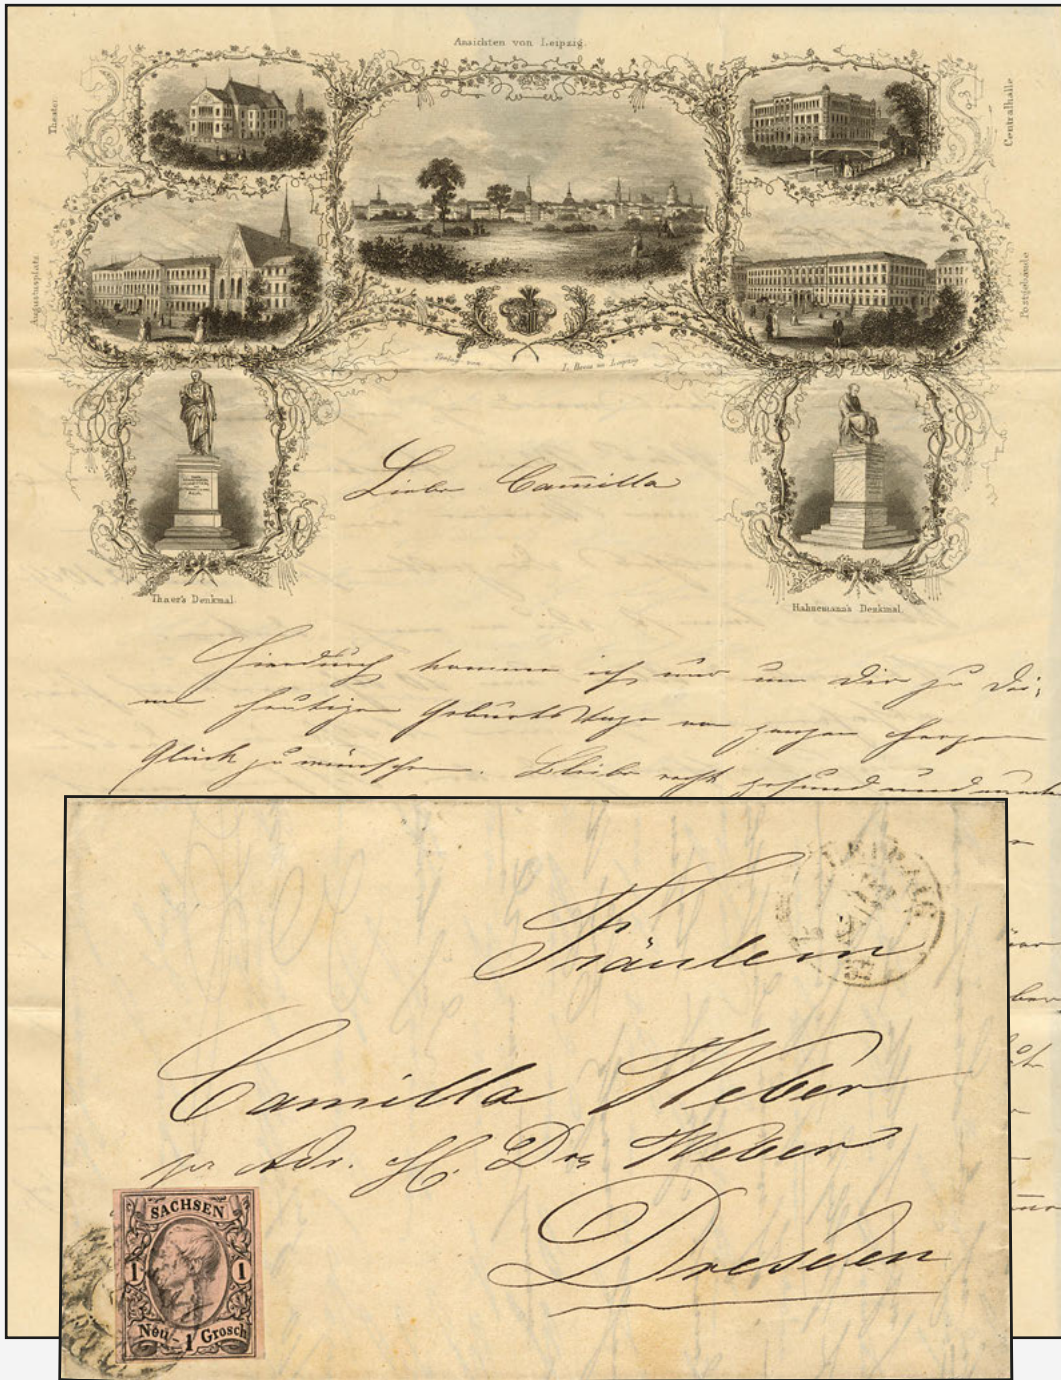 Ansichten von Leipzig.
Theater.
Centralhalle
Augustusplatz
Postgebäude
Verlag von
in Leipzig
Thaer's Denkmal.
Hahnemann's Denkmal.
Liebe Cam̄illa
Hierdurch komme ich nur um Dir zu Dei-
nem heutigen Geburtstage von ganzen Herzen
Glück zu wünschen. Bleibe recht gesund und munter
LEIPZIG
Fräulein
Camilla Weber
pr Adr. H. Dr. Weber
Dresden
SACHSEN
1 1
Neu- 1 Grosch